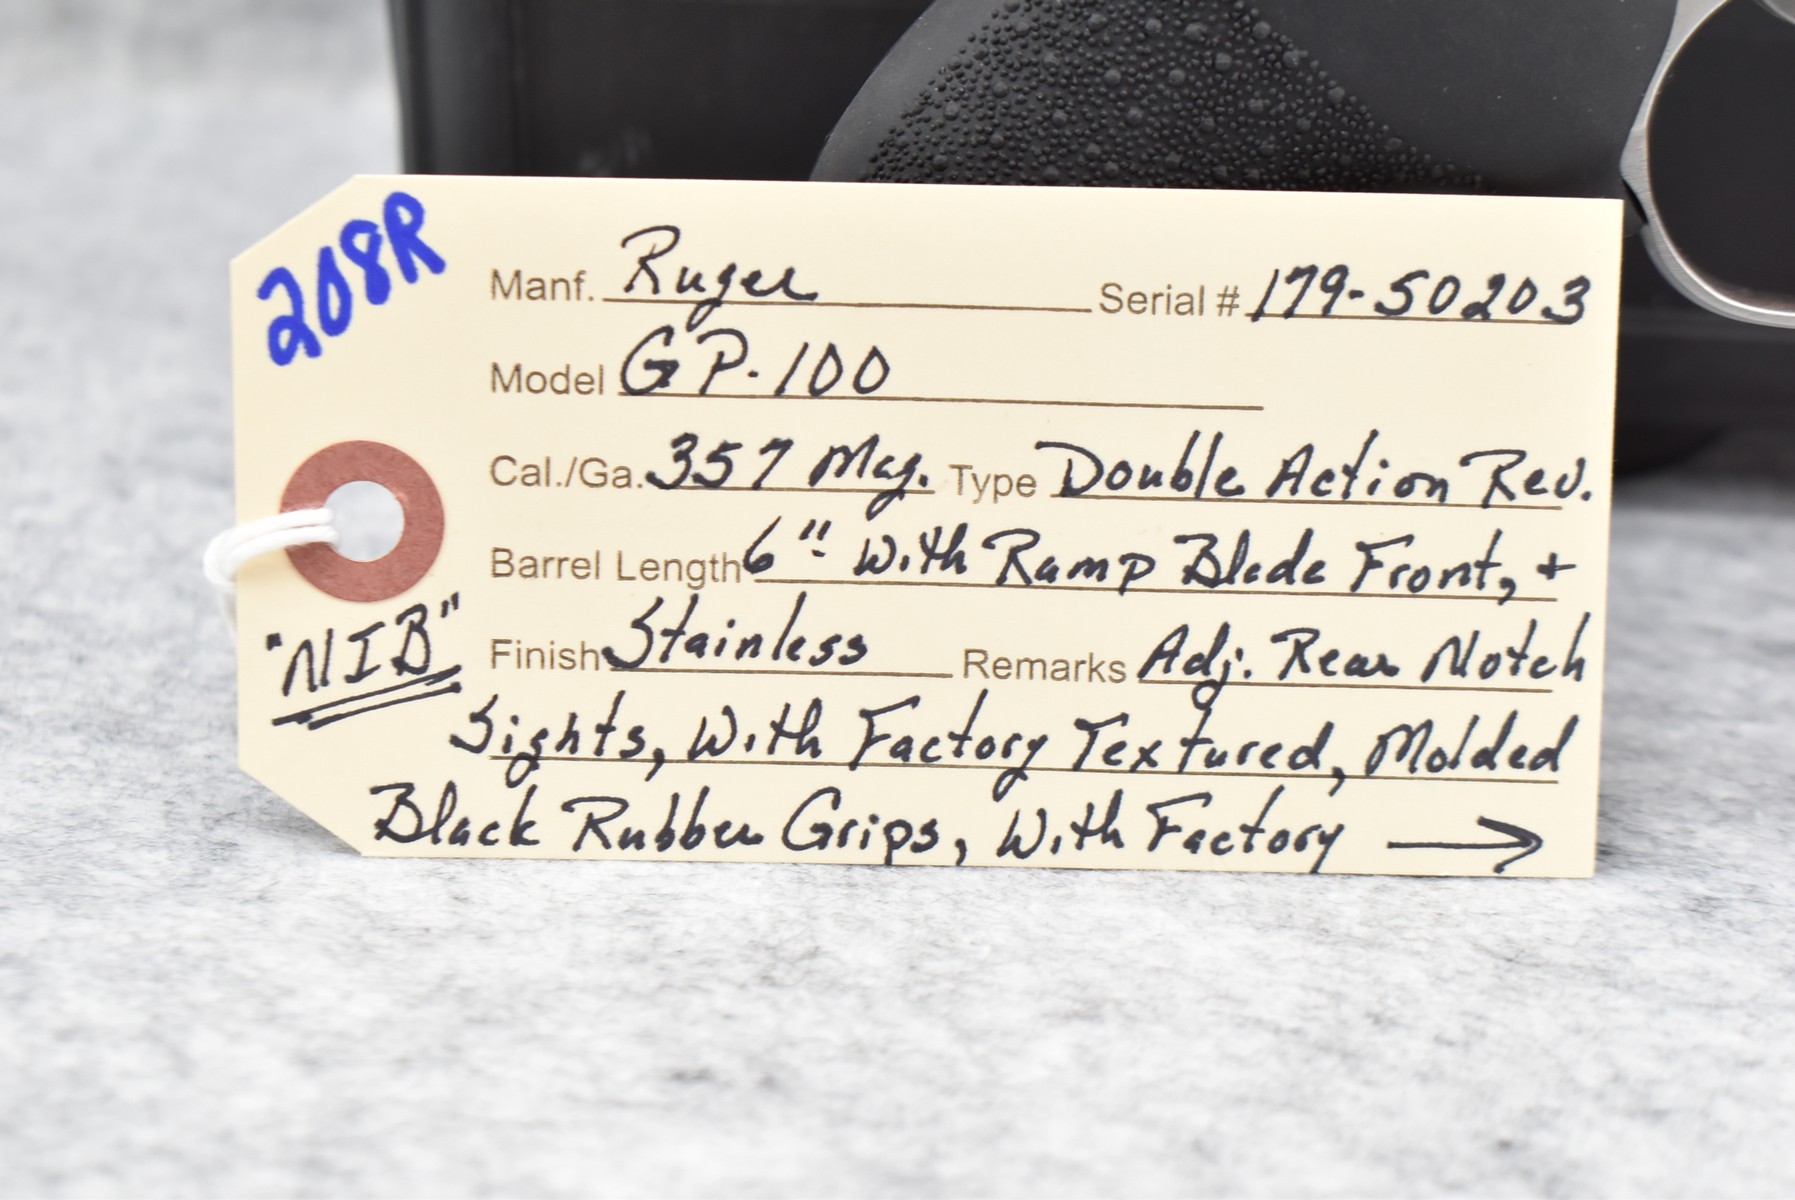 208R
Manf. Ruger Serial # 179-50203
Model GP-100
Cal./Ga. 357 Mag. Type Double Action Rev.
Barrel Length 6" With Ramp Blade Front, +
"NIB"
Finish Stainless Remarks Adj. Rear Notch
Sights, With Factory Textured, Molded
Black Rubber Grips, With Factory →